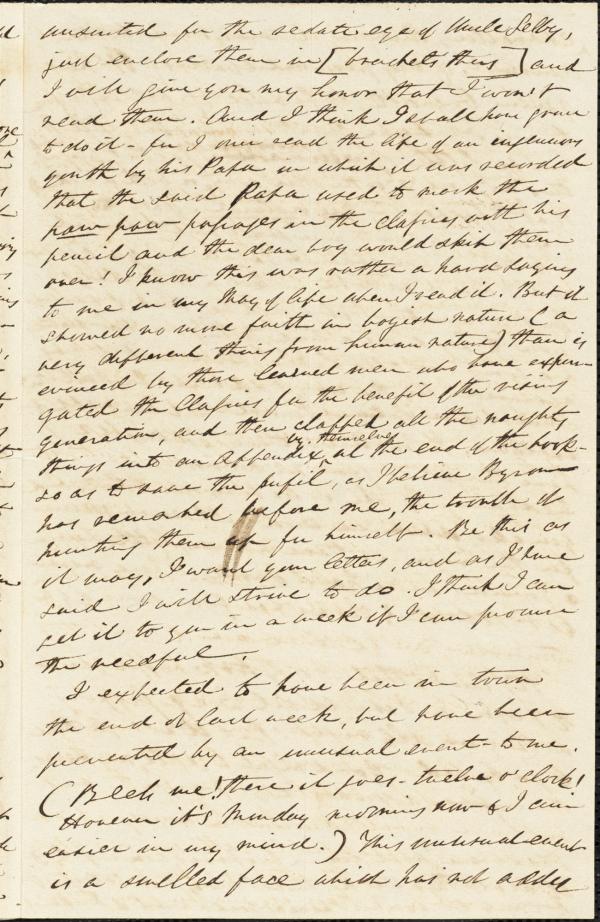 unsuited for the sedate eye of Uncle Selby,
just enclose them in [brackets thus] and
I will give you my honor that I won't
read them. And I think I shall have grace
to do it - for I once read the life of an ingenuous
youth by his Papa in which it was recorded
that the said Papa used to mark the
paw paw passages in the classics with his
pencil and the dear boy would skip them
over! I know this was rather a hard saying
to me in my May of life when I read it. But it
showed no more faith in boyish nature (a
very different thing from human nature) than is
evinced by those learned men who have expur-
gated the Classics for the benefit of the rising
generation, and then clapped all the naughty
things into an Appendix by themselves at the end of the book -
so as to save the pupil, as I believe Byron
has remarked before me, the trouble of
hunting them up for himself. Be this as
it may, I want your letters, and as I have
said I will strive to do. I think I can
get it to you in a week if I can promise
the needful.
I expected to have been in town
the end of last week, but have been
prevented by an unusual event - to me.
(Bless me! there it goes - twelve o'clock!
However it's Monday morning now & I am
easier in my mind.) This unusual event
is a swelled face which has not added